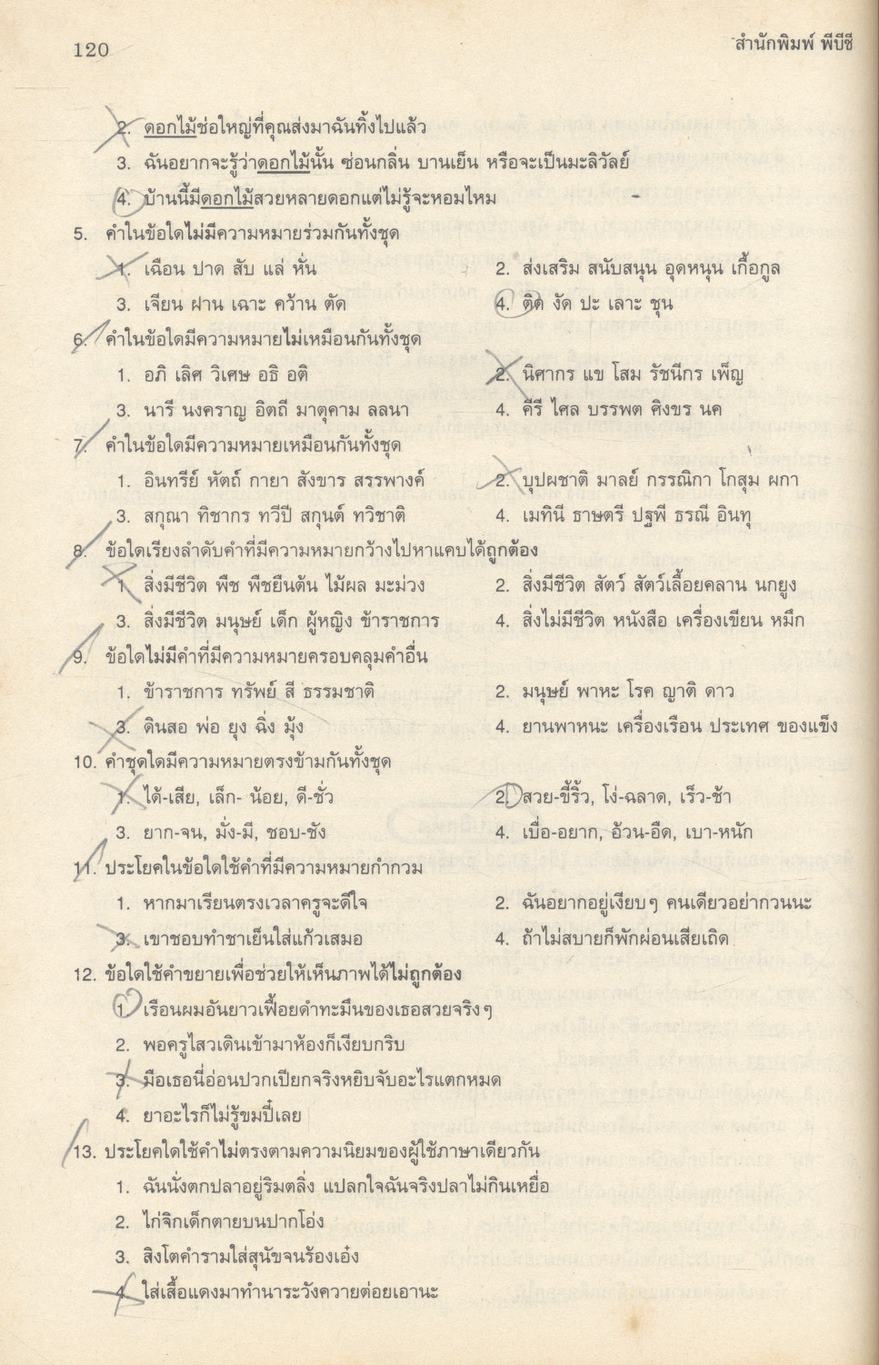 120
สำนักพิมพ์ พีบีซี
2. ดอกไม้ช่อใหญ่ที่คุณส่งมาฉันทิ้งไปแล้ว
3. ฉันอยากจะรู้ว่าดอกไม้นั้น ซ่อนกลิ่น บานเย็น หรือจะเป็นมะลิวัลย์
4. บ้านนี้มีดอกไม้สวยหลายดอกแต่ไม่รู้จะหอมไหม
5. คำในข้อใดไม่มีความหมายร่วมกันทั้งชุด
1. เฉือน ปาด สับ แล่ หั่น 2. ส่งเสริม สนับสนุน อุดหนุน เกื้อกูล
3. เจียน ฝาน เฉาะ คว้าน ตัด 4. ติด งัด ปะ เลาะ ชุน
6. คำในข้อใดมีความหมายไม่เหมือนกันทั้งชุด
1. อภิ เลิศ วิเศษ อธิ อติ 2. นิศากร แข โสม รัชนีกร เพ็ญ
3. นารี นงคราญ อิตถี มาตุคาม ลลนา 4. คีรี ไศล บรรพต ศิงขร นค
7. คำในข้อใดมีความหมายเหมือนกันทั้งชุด
1. อินทรีย์ หัตถ์ กายา สังขาร สรรพางค์ 2. บุปผชาติ มาลย์ กรรณิกา โกสุม ผกา
3. สกุณา ทิชากร ทวีปี สกุนต์ ทวิชาติ 4. เมทินี ธาษตรี ปฐพี ธรณี อินทุ
8. ข้อใดเรียงลำดับคำที่มีความหมายกว้างไปหาแคบได้ถูกต้อง
1. สิ่งมีชีวิต พืช พืชยืนต้น ไม้ผล มะม่วง 2. สิ่งมีชีวิต สัตว์ สัตว์เลื้อยคลาน นกยูง
3. สิ่งมีชีวิต มนุษย์ เด็ก ผู้หญิง ข้าราชการ 4. สิ่งไม่มีชีวิต หนังสือ เครื่องเขียน หมึก
9. ข้อใดไม่มีคำที่มีความหมายครอบคลุมคำอื่น
1. ข้าราชการ ทรัพย์ สี ธรรมชาติ 2. มนุษย์ พาหะ โรค ญาติ ดาว
3. ดินสอ พ่อ ยุง ฉิ่ง มุ้ง 4. ยานพาหนะ เครื่องเรือน ประเทศ ของแข็ง
10. คำชุดใดมีความหมายตรงข้ามกันทั้งชุด
1. ได้-เสีย, เล็ก- น้อย, ดี-ชั่ว 2. สวย-ขี้ริ้ว, โง่-ฉลาด, เร็ว-ช้า
3. ยาก-จน, มั่ง-มี, ชอบ-ชัง 4. เบื่อ-อยาก, อ้วน-อืด, เบา-หนัก
11. ประโยคในข้อใดใช้คำที่มีความหมายกำกวม
1. หากมาเรียนตรงเวลาครูจะดีใจ 2. ฉันอยากอยู่เงียบๆ คนเดียวอย่ากวนนะ
3. เขาชอบทำชาเย็นใส่แก้วเสมอ 4. ถ้าไม่สบายก็พักผ่อนเสียเถิด
12. ข้อใดใช้คำขยายเพื่อช่วยให้เห็นภาพได้ไม่ถูกต้อง
1. เรือนผมอันยาวเฟื้อยดำทะมึนของเธอสวยจริงๆ
2. พอครูไสวเดินเข้ามาห้องก็เงียบกริบ
3. มือเธอนี่อ่อนปวกเปียกจริงหยิบจับอะไรแตกหมด
4. ยาอะไรก็ไม่รู้ขมปี๋เลย
13. ประโยคใดใช้คำไม่ตรงตามความนิยมของผู้ใช้ภาษาเดียวกัน
1. ฉันนั่งตกปลาอยู่ริมตลิ่ง แปลกใจฉันจริงปลาไม่กินเหยื่อ
2. ไก่จิกเด็กตายบนปากโอ่ง
3. สิงโตคำรามใส่สุนัขจนร้องเอ๋ง
4. ใส่เสื้อแดงมาทำนาระวังควายต่อยเอานะ